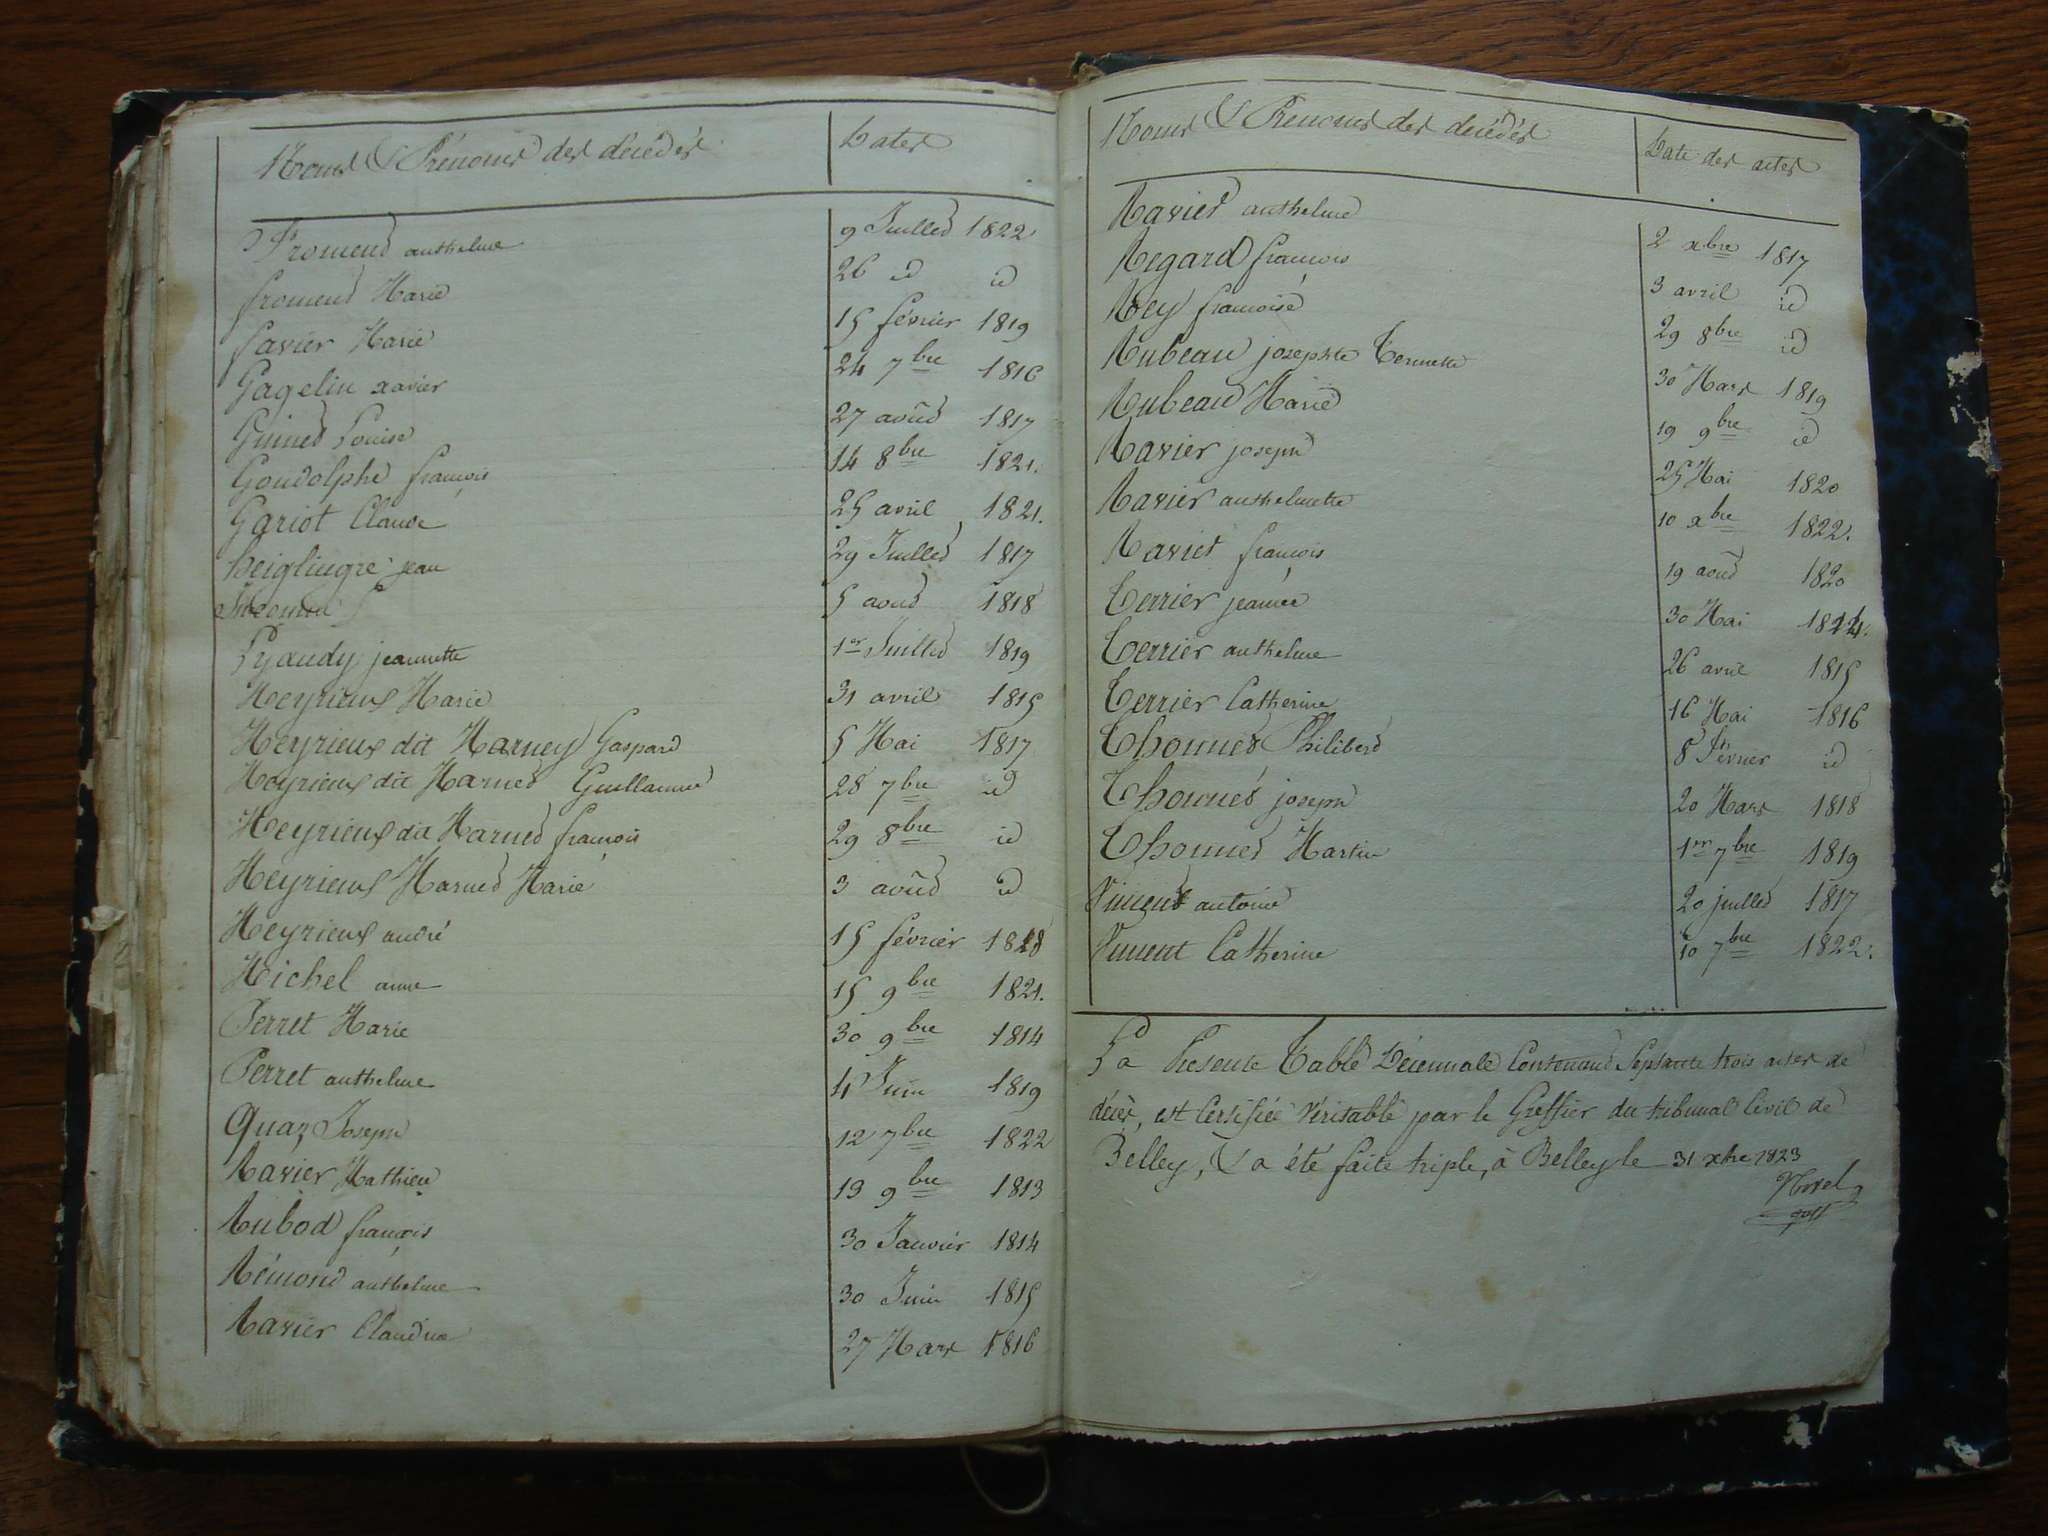 Noms & Prénoms des décédés Dates
Froment anthelme 9 Juillet 1822
froment Marie 26 id id
favier Marie 15 février 1819
Gagelin xavier 24 7bre 1816
Guinet Louise 27 août 1817
Gondolphe françois 14 8bre 1821.
Gariot Claude 25 avril 1821.
heiglingre jean 29 Juillet 1817
Inconnu 5 août 1818
Lyaudy jeannette 1er Juillet 1819
Meyrieux Marie 31 avril 1815
Meyrieux dit Marney Gaspard 5 Mai 1817
Meyrieux dit Marnet Guillaume 28 7bre id
Meyrieux dit Marnet françois 29 8bre id
Meyrieux Marnet Marie 3 août id
Meyrieux andré 15 février 1818
Michel anne 15 9bre 1821.
Perret Marie 30 9bre 1814
Perret anthelme 4 Juin 1819
Quaz Joseph 12 7bre 1822
Ravier Mathieu 19 9bre 1813
Rubod françois 30 Janvier 1814
Rémond anthelme 30 Juin 1815
Ravier Claudine 27 Mars 1816
Noms & Prenoms des décédés Date des actes
Raviet anthelme 2 xbre 1817
Regard françois 3 avril id
Rey françoise 29 8bre id
Rubeau josephte 30 Mars 1819
Rubeau Marie 19 9bre id
Ravier joseph 25 Mai 1820
Ravier anthelmette 10 xbre 1822.
Raviet françois 19 août 1820
Terrier jeanne 30 Mai
Terrier anthelme 26 avril 1815
Terrier Catherine 16 Mai 1816
Thonnet Philibert 8 Février id
Thonnet joseph 20 Mars 1818
Thonnet Martin 1er 7bre 1819
Vincent antoine 20 juillet 1817
Vincent Catherine 10 7bre 1822.
La Presente Table Décennale Contenant Septante trois actes de
décès, est Certifiée Véritable par le Greffier du tribunal Civil de
Belley, & a été faite triple, à Belley le 31 xbre 1823